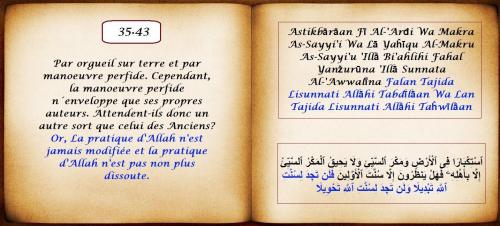 35-43
Par orgueil sur terre et par
manoeuvre perfide. Cependant,
la manoeuvre perfide
n´enveloppe que ses propres
auteurs. Attendent-ils donc un
autre sort que celui des Anciens?
Or, La pratique d'Allah n'est
jamais modifiée et la pratique
d'Allah n'est pas non plus
dissoute.
Astikbārāan Fī Al-'Arđi Wa Makra
As-Sayyi'i Wa Lā Yaĥīqu Al-Makru
As-Sayyi'u 'Illā Bi'ahlihi Fahal
Yanžurūna 'Illā Sunnata
Al-'Awwalīna Falan Tajida
Lisunnati Allāhi Tabdīlāan Wa Lan
Tajida Lisunnati Allāhi Taĥwīlāan
ٱسْتِكْبَارًا فِي ٱلْأَرْضِ وَمَكْرَ ٱلسَّيِّئِ وَلَا يَحِيقُ ٱلْمَكْرُ ٱلسَّيِّئُ
إِلَّا بِأَهْلِهِ ۚ فَهَلْ يَنظُرُونَ إِلَّا سُنَّتَ ٱلْأَوَّلِينَ فَلَن تَجِدَ لِسُنَّتِ
ٱللَّهِ تَبْدِيلًا وَلَن تَجِدَ لِسُنَّتِ ٱللَّهِ تَحْوِيلًا